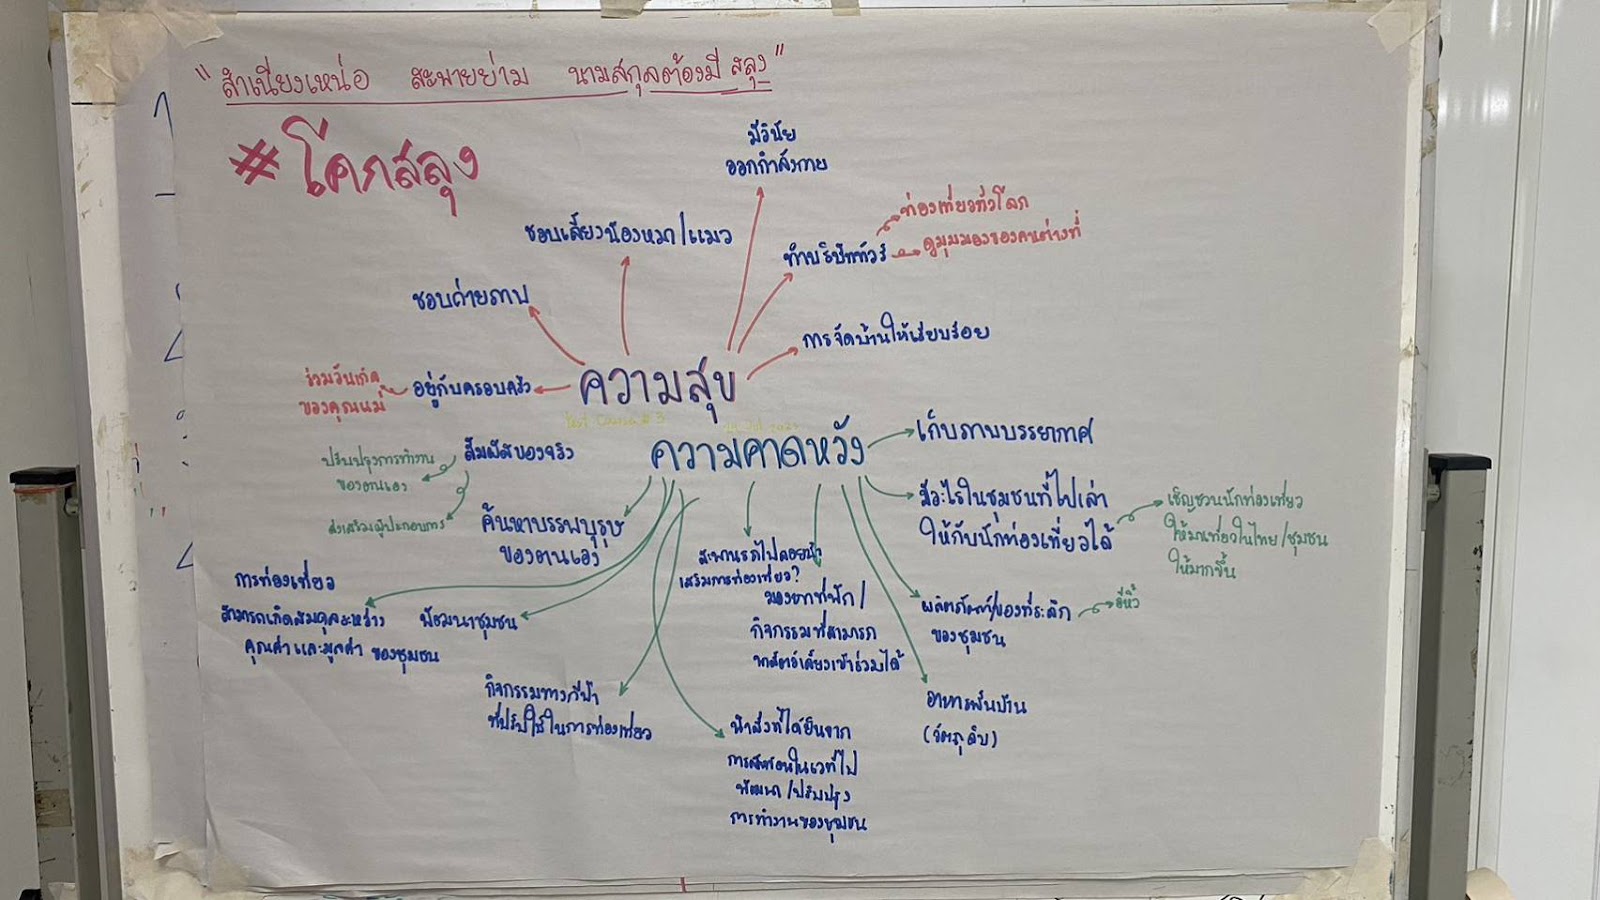 "สำเนียงเหน่อ สะพายย่าม นามสกุลต้องมี สลุง"
#โคกสลุง
มีวินัย
ออกกำลังกาย
ท่องเที่ยวทั่วโลก
ชอบเลี้ยงน้องหมา/แมว
ทำบริษัททัวร์
ดูมุมมองของคนต่างที่
ชอบถ่ายภาพ
การจัดบ้านให้เรียบร้อย
ร่วมวันเกิด
ของคุณแม่
อยู่กับครอบครัว
ความสุข
ความคาดหวัง
เก็บภาพบรรยากาศ
สัมผัสของจริง
ปรับปรุงการทำงาน
ของตนเอง
ส่งเสริมผู้ประกอบการ
ค้นหาบรรพบุรุษ
ของตนเอง
มีอะไรในชุมชนที่ไปเล่า
ให้กับนักท่องเที่ยวได้
เชิญชวนนักท่องเที่ยว
ให้มาเที่ยวในไทย/ชุมชน
ให้มากขึ้น
สะพานรถไฟลอยน้ำ
เสริมการท่องเที่ยว?
มองหาที่พัก/
กิจกรรมที่สามารถ
สัตว์เลี้ยงเข้าร่วมได้
การท่องเที่ยว
สามารถเกิดสมดุลระหว่าง
คุณค่าและมูลค่า ของชุมชน
พัฒนาชุมชน
ผลิตภัณฑ์/ของที่ระลึก
ของชุมชน
อีหิ้ว
กิจกรรมทางกีฬา
ที่ปรับใช้ในการท่องเที่ยว
อาหารพื้นบ้าน
(วัตถุดิบ)
นำสิ่งที่ได้ยินจาก
การสะท้อนในเวทีไป
พัฒนา/ปรับปรุง
การทำงานของชุมชน